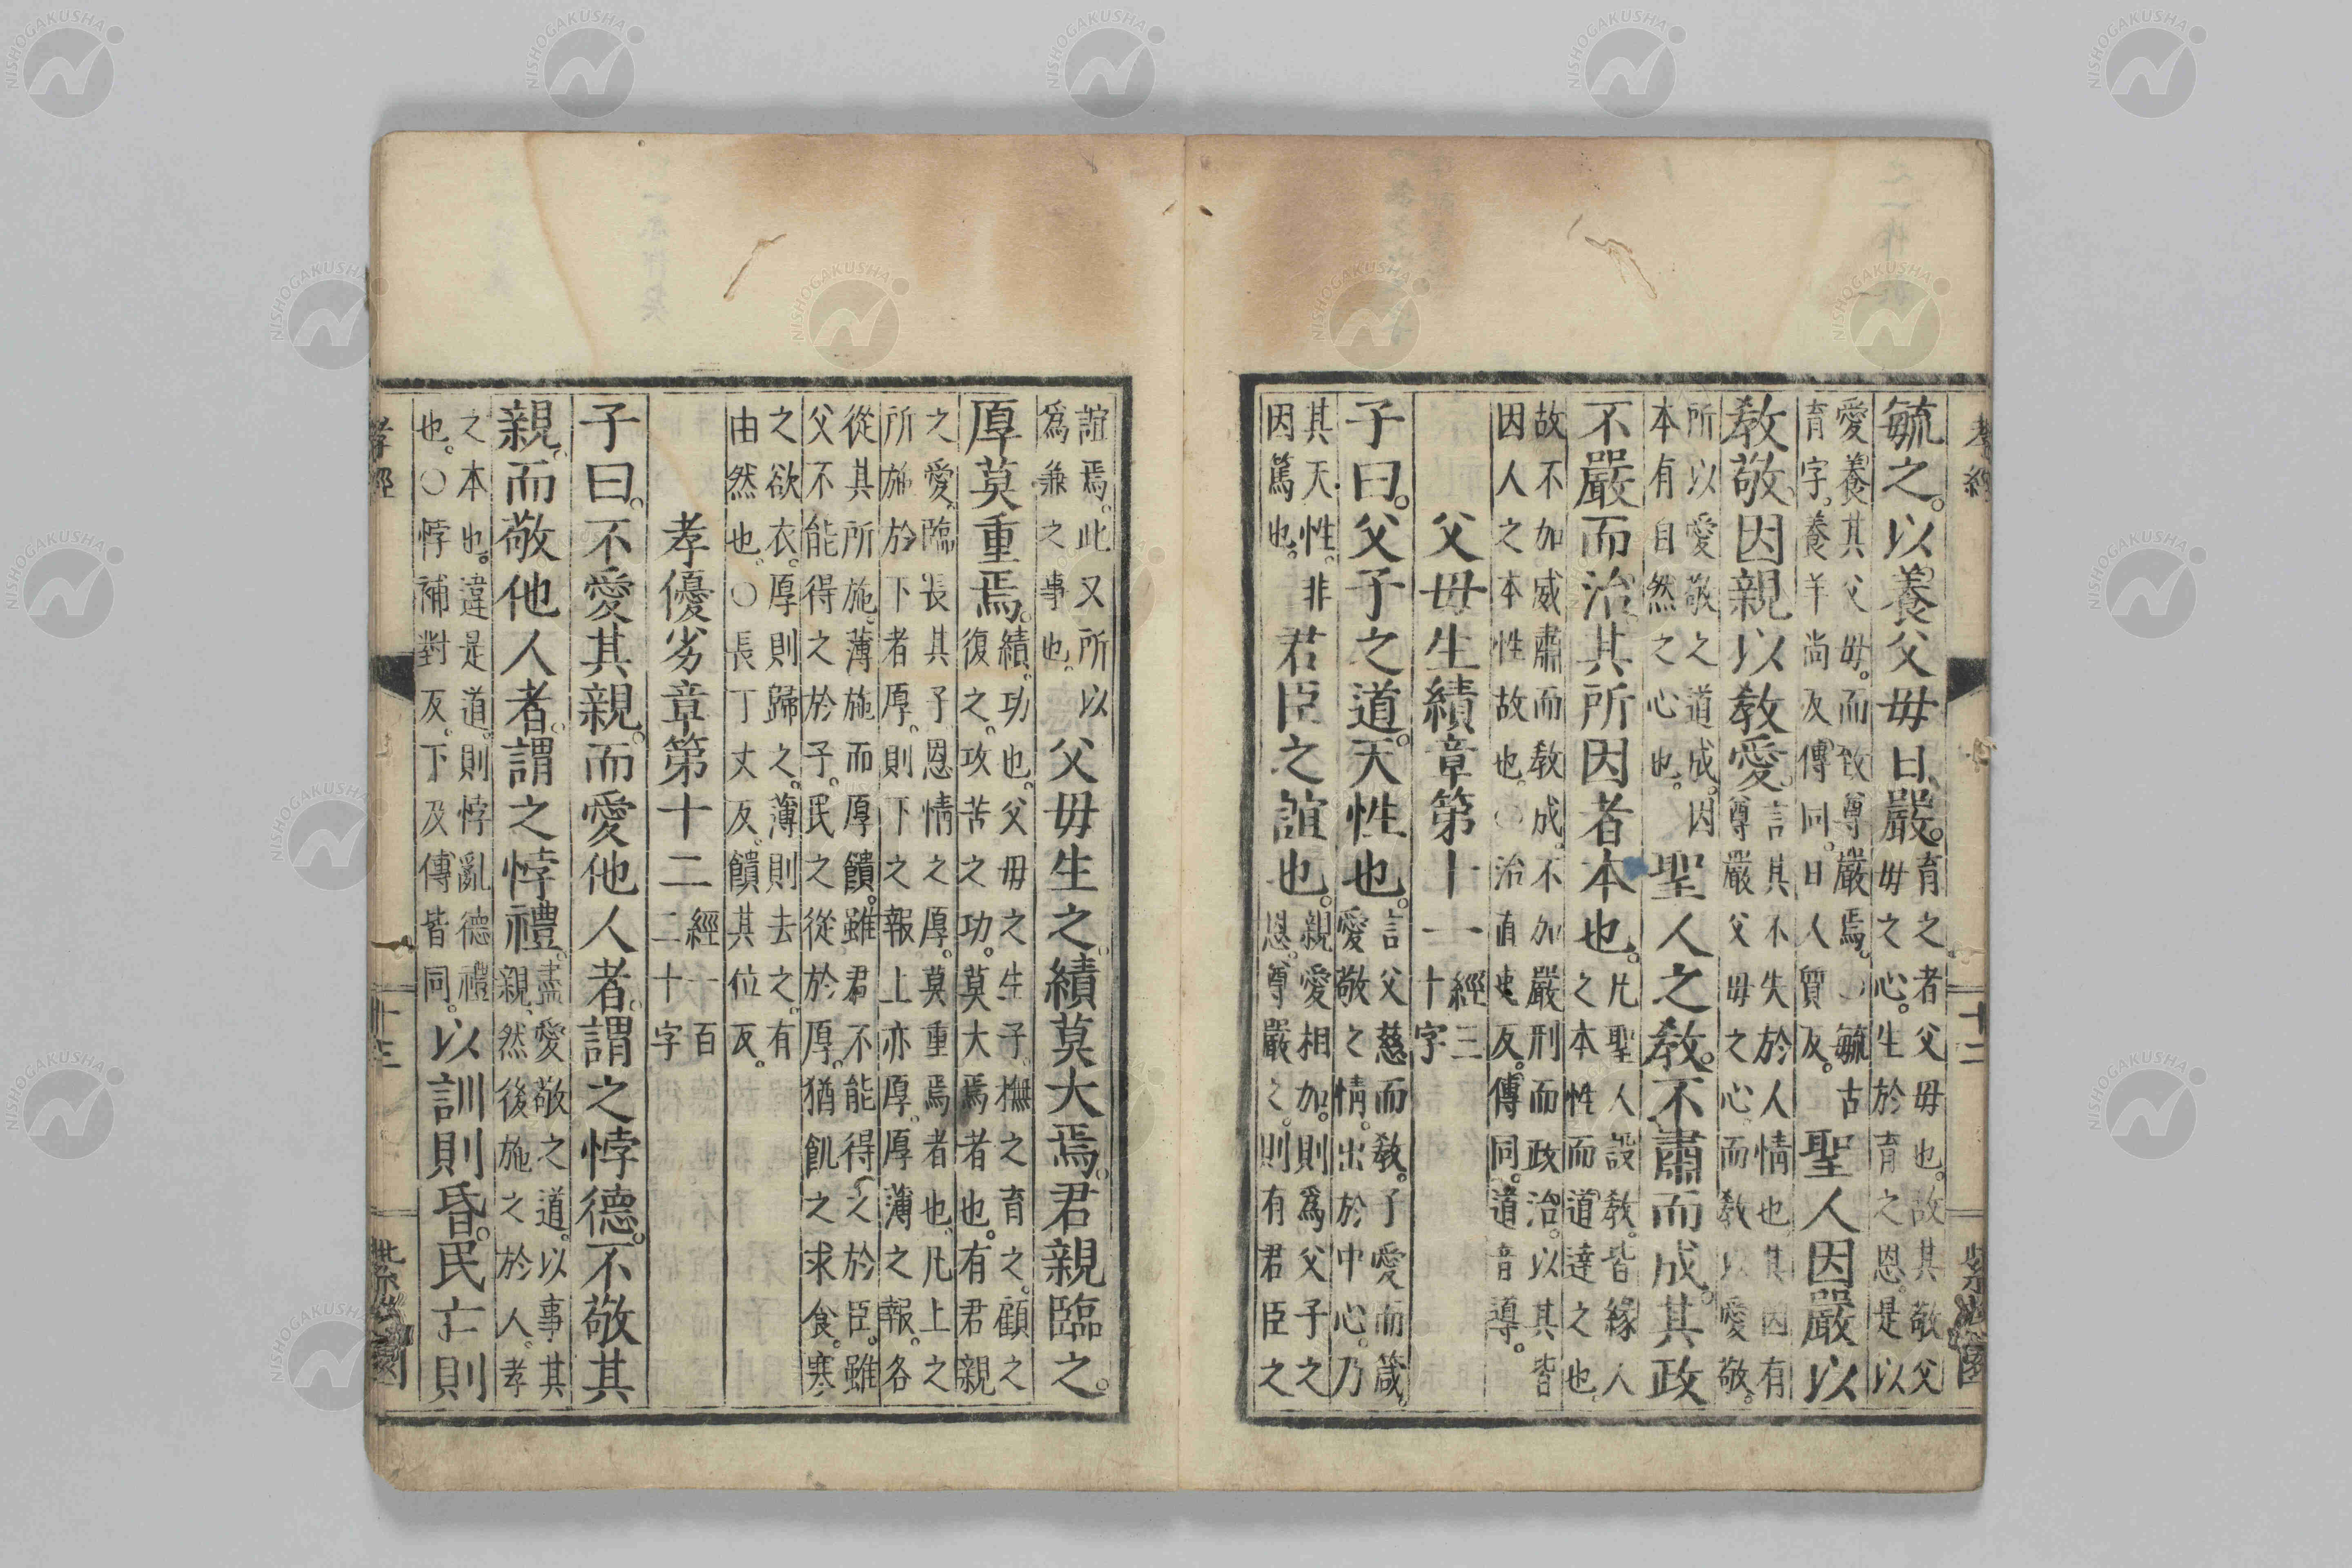 孝經 十二 紫芝園
毓之。以養父母日嚴。育之者父母也。故其敬父
母之心。生於育之恩。是以
愛養其父母。而致尊嚴焉。○毓古
育字。養羊尚反。傳同。日人質反。聖人因嚴以
教敬。因親以教愛。言其不失於人情也。其因有
尊嚴父母之心。而教以愛敬。
所以愛敬之道成。因
本有自然之心也。聖人之教。不肅而成。其政
不嚴而治。其所因者本也。凡聖人設教。皆緣人
之本性而道達之也。
故不加威肅而教成。不加嚴刑而政治。以其皆
因人之本性故也。○治直吏反。傳同。道音導。
父母生績章第十一 經三
十字
子曰。父子之道。天性也。言父慈而教。子愛而箴。
愛敬之情。出於中心。乃
其天性。非
因篤也。君臣之誼也。親愛相加。則爲父子之
恩。尊嚴之。則有君臣之
誼焉。此又所以
爲兼之事也。父母生之。績莫大焉。君親臨之。
厚莫重焉。績功也。父母之生子。撫之育之。顧之
復之。攻苦之功。莫大焉者也。有君親
之愛。臨長其子。恩情之厚。莫重焉者也。凡上之
所施於下者厚。則下之報上亦厚。厚薄之報。各
從其所施。薄施而厚饋。雖君不能得之於臣。雖
父不能得之於子。民之從於厚。猶飢之求食。寒
之欲衣。厚則歸之。薄則去之。有
由然也。○長丁丈反。饋其位反。
孝優劣章第十二 經一百
二十字
子曰。不愛其親。而愛他人者。謂之悖德。不敬其
親。而敬他人者。謂之悖禮。盡愛敬之道。以事其
親。然後施之於人。孝
之本也。違是道。則悖亂德禮
也。○悖補對反。下及傳皆同。以訓則昏。民亡則
孝經 十三